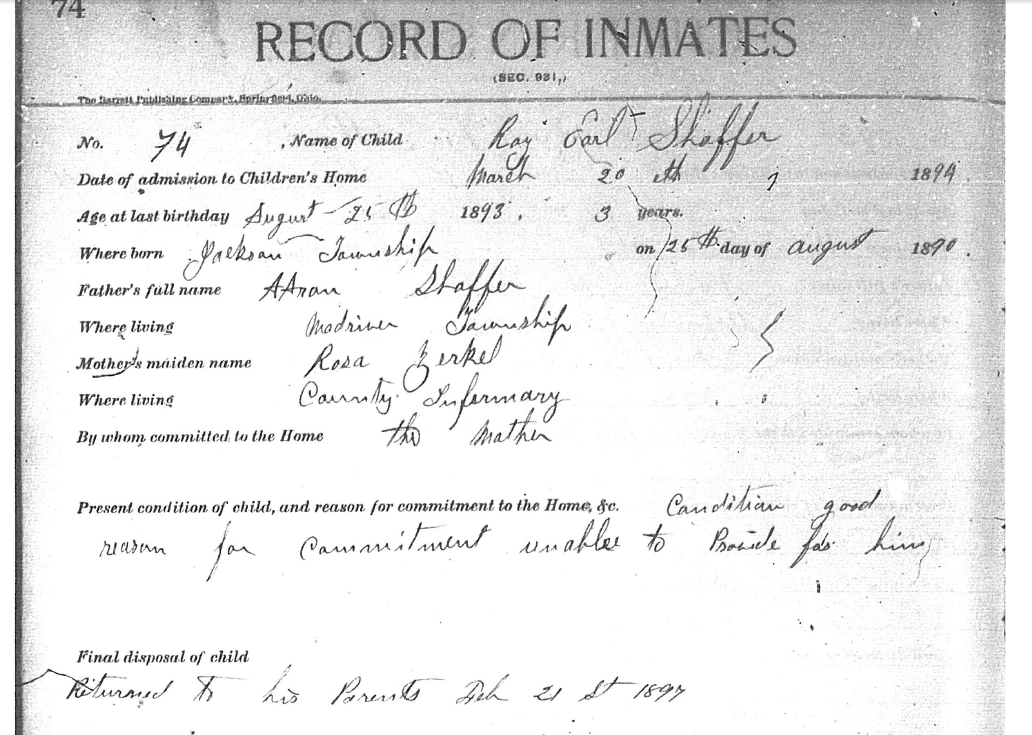 74
RECORD OF INMATES
(SEC. 931,)
The Barrett Publishing Company, Springfield, Ohio.
No. 74 , Name of Child Ray Earl Shaffer
Date of admission to Children's Home March 20 th 1894
Age at last birthday August 25th 1893. 3 years.
Where born Jackson Township on 25th day of august 1890.
Father's full name AAron Shaffer
Where living Madriver Township
Mother's maiden name Rosa Zerkel
Where living County Infermary
By whom committed to the Home the Mother
Present condition of child, and reason for commitment to the Home, &c. Condition good
reason for Commitment unable to Provide for him
Final disposal of child
Returned to his Parents Feb 21 St 1897